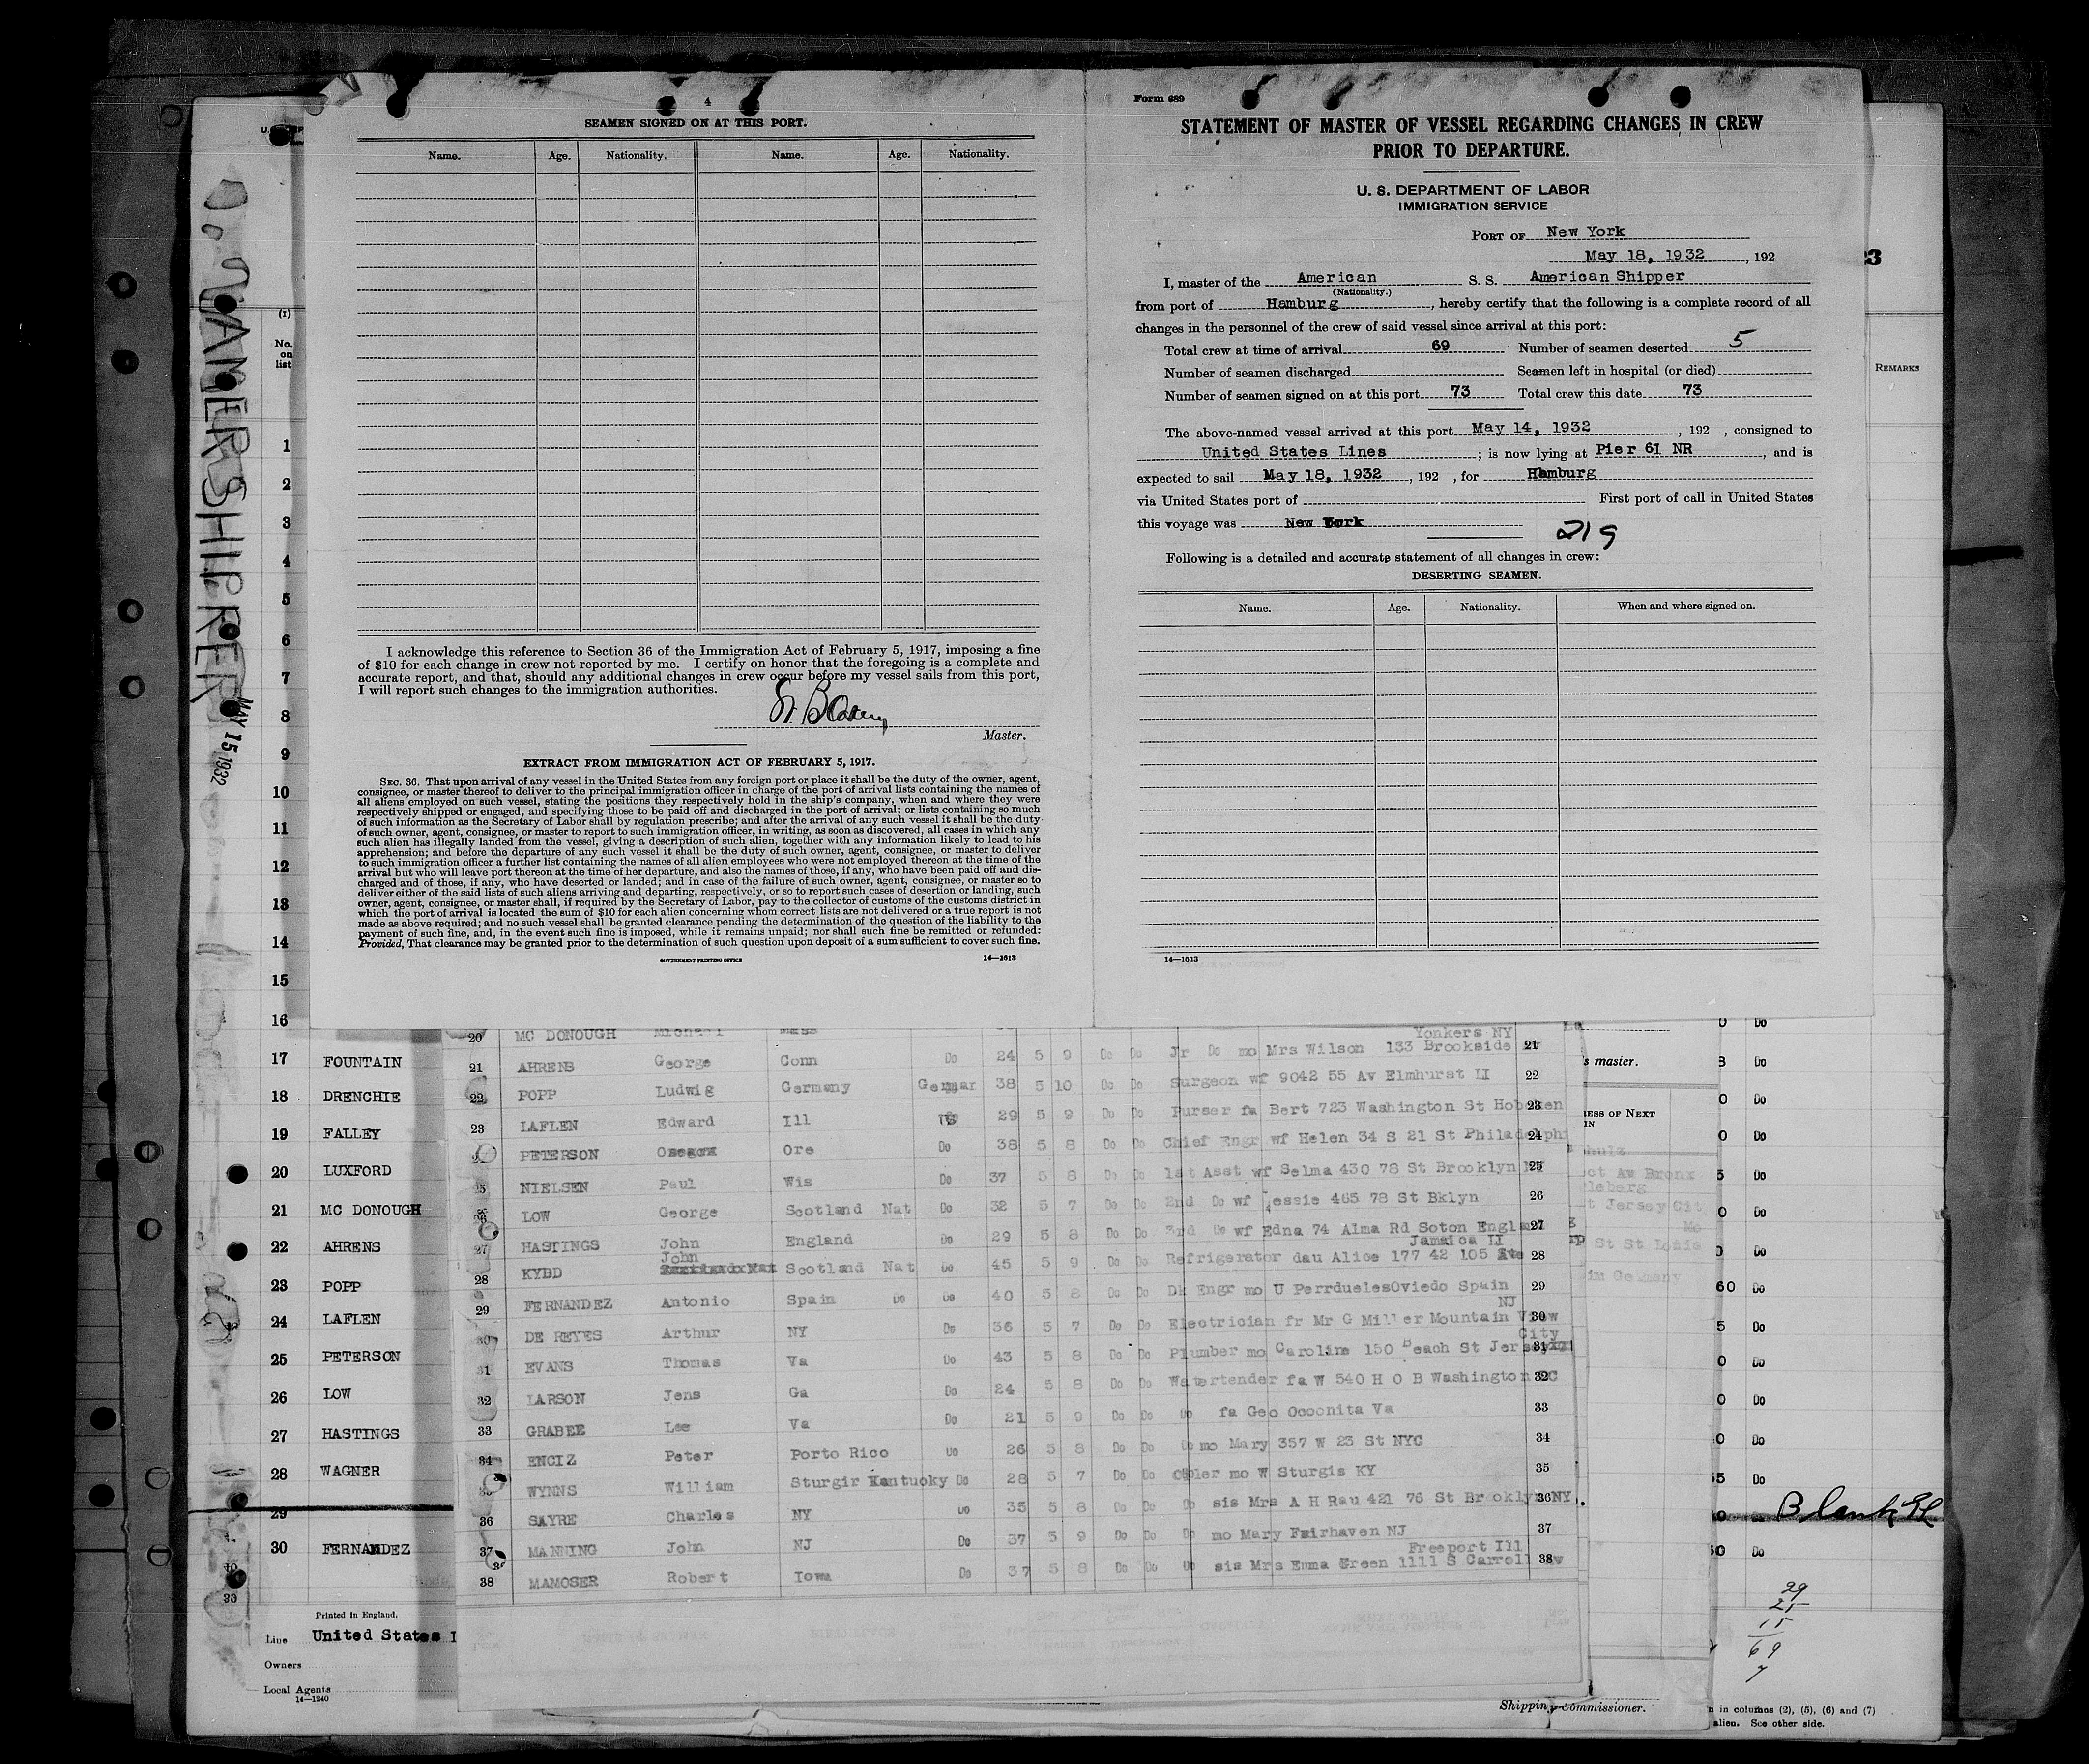 4
SEAMEN SIGNED ON AT THIS PORT.
Name. Age. Nationality. Name. Age. Nationality.
I acknowledge this reference to Section 36 of the Immigration Act of February 5, 1917, imposing a fine
of $10 for each change in crew not reported by me. I certify on honor that the foregoing is a complete and
accurate report, and that, should any additional changes in crew occur before my vessel sails from this port,
I will report such changes to the immigration authorities.
Master.
EXTRACT FROM IMMIGRATION ACT OF FEBRUARY 5, 1917.
SEC. 36. That upon arrival of any vessel in the United States from any foreign port or place it shall be the duty of the owner, agent,
consignee, or master thereof to deliver to the principal immigration officer in charge of the port of arrival lists containing the names of
all aliens employed on such vessel, stating the positions they respectively hold in the ship's company, when and where they were
respectively shipped or engaged, and specifying those to be paid off and discharged in the port of arrival; or lists containing so much
of such information as the Secretary of Labor shall by regulation prescribe; and after the arrival of any such vessel it shall be the duty
of such owner, agent, consignee, or master to report to such immigration officer, in writing, as soon as discovered, all cases in which any
such alien has illegally landed from the vessel, giving a description of such alien, together with any information likely to lead to his
apprehension; and before the departure of any such vessel it shall be the duty of such owner, agent, consignee, or master to deliver
to such immigration officer a further list containing the names of all alien employees who were not employed thereon at the time of the
arrival but who will leave port thereon at the time of her departure, and also the names of those, if any, who have been paid off and dis-
charged and of those, if any, who have deserted or landed; and in case of the failure of such owner, agent, consignee, or master so to
deliver either of the said lists of such aliens arriving and departing, respectively, or so to report such cases of desertion or landing, such
owner, agent, consignee, or master shall, if required by the Secretary of Labor, pay to the collector of customs of the customs district in
which the port of arrival is located the sum of $10 for each alien concerning whom correct lists are not delivered or a true report is not
made as above required; and no such vessel shall be granted clearance pending the determination of the question of the liability to the
payment of such fine, and, in the event such fine is imposed, while it remains unpaid; nor shall such fine be remitted or refunded:
Provided, That clearance may be granted prior to the determination of such question upon deposit of a sum sufficient to cover such fine.
GOVERNMENT PRINTING OFFICE 14—1613
Form 689
STATEMENT OF MASTER OF VESSEL REGARDING CHANGES IN CREW
PRIOR TO DEPARTURE.
U. S. DEPARTMENT OF LABOR
IMMIGRATION SERVICE
PORT OF New York
May 18, 1932, 192
I, master of the American S. S. American Shipper
(Nationality.)
from port of Hamburg, hereby certify that the following is a complete record of all
changes in the personnel of the crew of said vessel since arrival at this port:
Total crew at time of arrival 69 Number of seamen deserted 5
Number of seamen discharged Seamen left in hospital (or died)
Number of seamen signed on at this port 73 Total crew this date 73
The above-named vessel arrived at this port May 14, 1932, 192 , consigned to
United States Lines; is now lying at Pier 61 NR, and is
expected to sail May 18, 1932, 192 , for Hamburg
via United States port of First port of call in United States
this voyage was New York
219
Following is a detailed and accurate statement of all changes in crew:
DESERTING SEAMEN.
Name. Age. Nationality. When and where signed on.
14—1613
AMER SHIPPER
MAY 15 1932
(1)
No.
on
list
1
2
3
4
5
6
7
8
9
10
11
12
13
14
15
16
17 FOUNTAIN
18 DRENCHIE
19 FALLEY
20 LUXFORD
21 MC DONOUGH
22 AHRENS
23 POPP
24 LAFLEN
25 PETERSON
26 LOW
27 HASTINGS
28 WAGNER
29
30 FERNANDEZ
Printed in England.
Line United States
Owners
Local Agents
14—1240
20 MC DONOUGH Michael Mass
Yonkers NY
21 AHRENS George Conn Do 24 5 9 Do Do Jr Do mo Mrs Wilson 133 Brookside 21
22 POPP Ludwig Germany German 38 5 10 Do Do Surgeon wf 9042 55 Av Elmhurst II 22
23 LAFLEN Edward Ill US 29 5 9 Do Do Purser fa Bert 723 Washington St Hoboken 23
PETERSON Ore Do 38 5 8 Do Do Chief Engr wf Helen 34 S 21 St Philadelphi 24
25 NIELSEN Paul Wis Do 37 5 8 Do Do 1st Asst wf Selma 430 78 St Brooklyn 25
26 LOW George Scotland Nat Do 32 5 7 Do Do 2nd Do wf Jessie 465 78 St Bklyn 26
27 HASTINGS John England Do 29 5 8 Do Do 3rd Do wf Edna 74 Alma Rd Soton England 27
Jamaica II
28 KYBD John Scotland Nat Do 45 5 9 Do Do Refrigerator dau Alice 177 42 105 28
29 FERNANDEZ Antonio Spain Do Do 40 5 8 Do Do Dk Engr mo U Perrdueles Oviedo Spain 29
NJ
30 DE REYES Arthur NY Do 36 5 7 Do Do Electrician fr Mr G Miller Mountain View 30
City
31 EVANS Thomas Va Do 43 5 8 Do Do Plumber mo Caroline 150 Beach St Jersey 31
32 LARSON Jens Ga Do 24 5 8 Do Do Watertender fa W 540 H O B Washington DC 32
33 GRABEE Lee Va Do 21 5 9 Do Do Do fa Geo Ocoonita Va 33
34 ENCIZ Peter Porto Rico Do 26 5 8 Do Do Do mo Mary 357 W 23 St NYC 34
35 WYNNS William Sturgir Kentucky Do 28 5 7 Do Do Oiler mo W Sturgis KY 35
36 SAYRE Charles NY Do 35 5 8 Do Do Do sis Mrs A H Rau 421 76 St Brooklyn NY 36
37 MANNING John NJ Do 37 5 9 Do Do Do mo Mary Fairhaven NJ 37
Freeport Ill
38 MAMOSER Robert Iowa Do 37 5 8 Do Do Do sis Mrs Emma Green 1111 S Carroll 38
23
REMARKS
's master.
ESS OF NEXT
Av Bronx
t Jersey Cit
Mo
St St Louis
im Germany
Do
Do
Do
Do
Do
60 Do
5 Do
Blank
29
25
15
69
Shipping Commissioner.
n in columns (2), (5), (6) and (7)
alien. See other side.